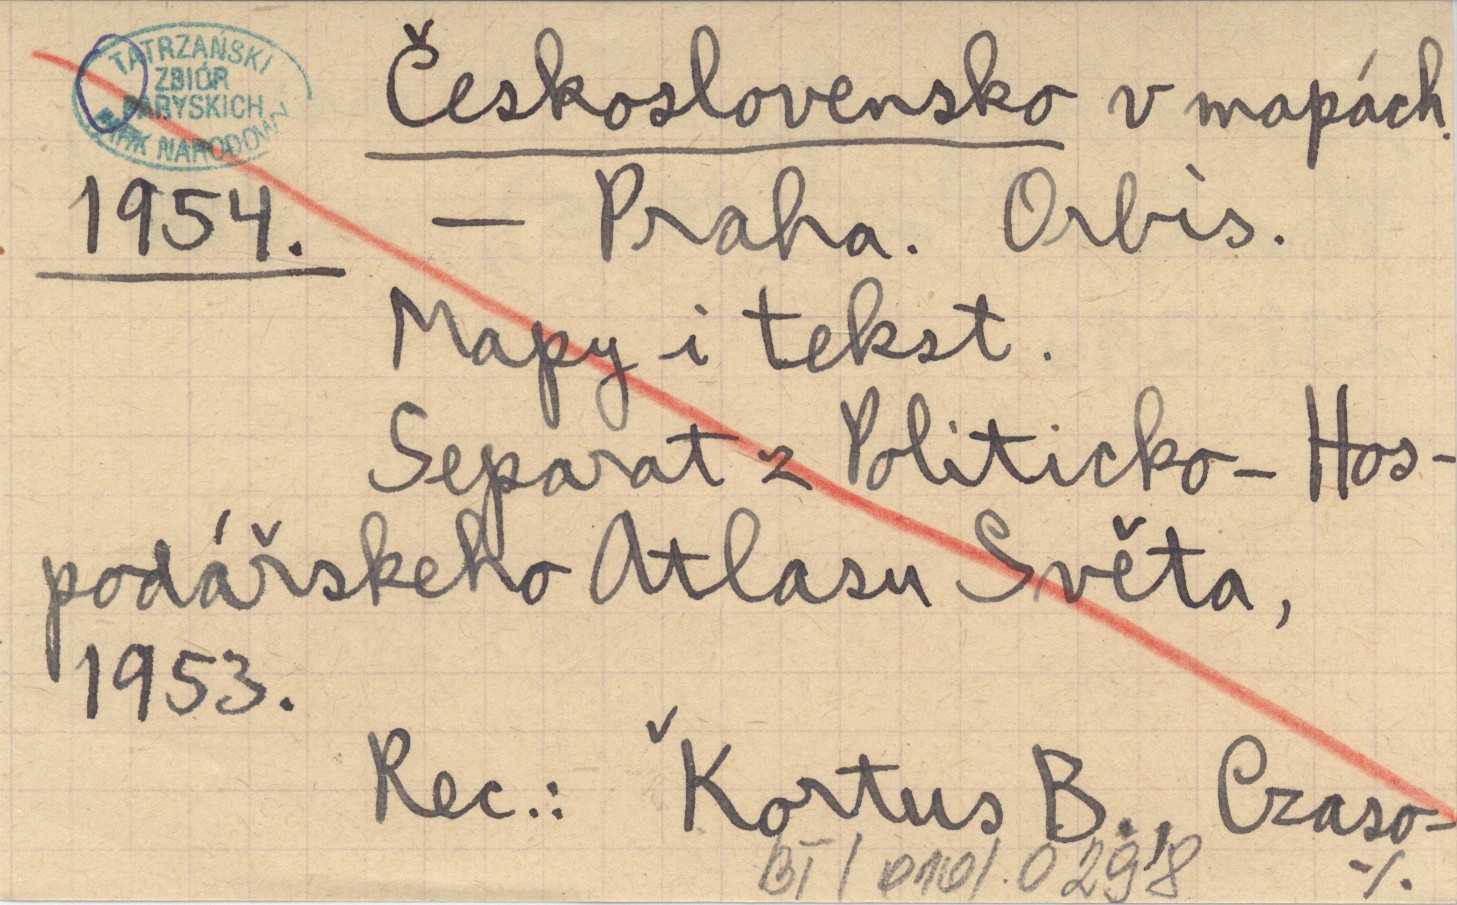 TATRZAŃSKI
ZBIÓR
PARYSKICH
PARK NARODOWY
Československo v mapách.
1954. — Praha. Orbis.
Mapy i tekst.
Separat z Politicko- Hos-
podářskeho Atlasu Světa,
1953.
Rec.: ˇKortus B., Czaso-
BT/010/.0298
-/.